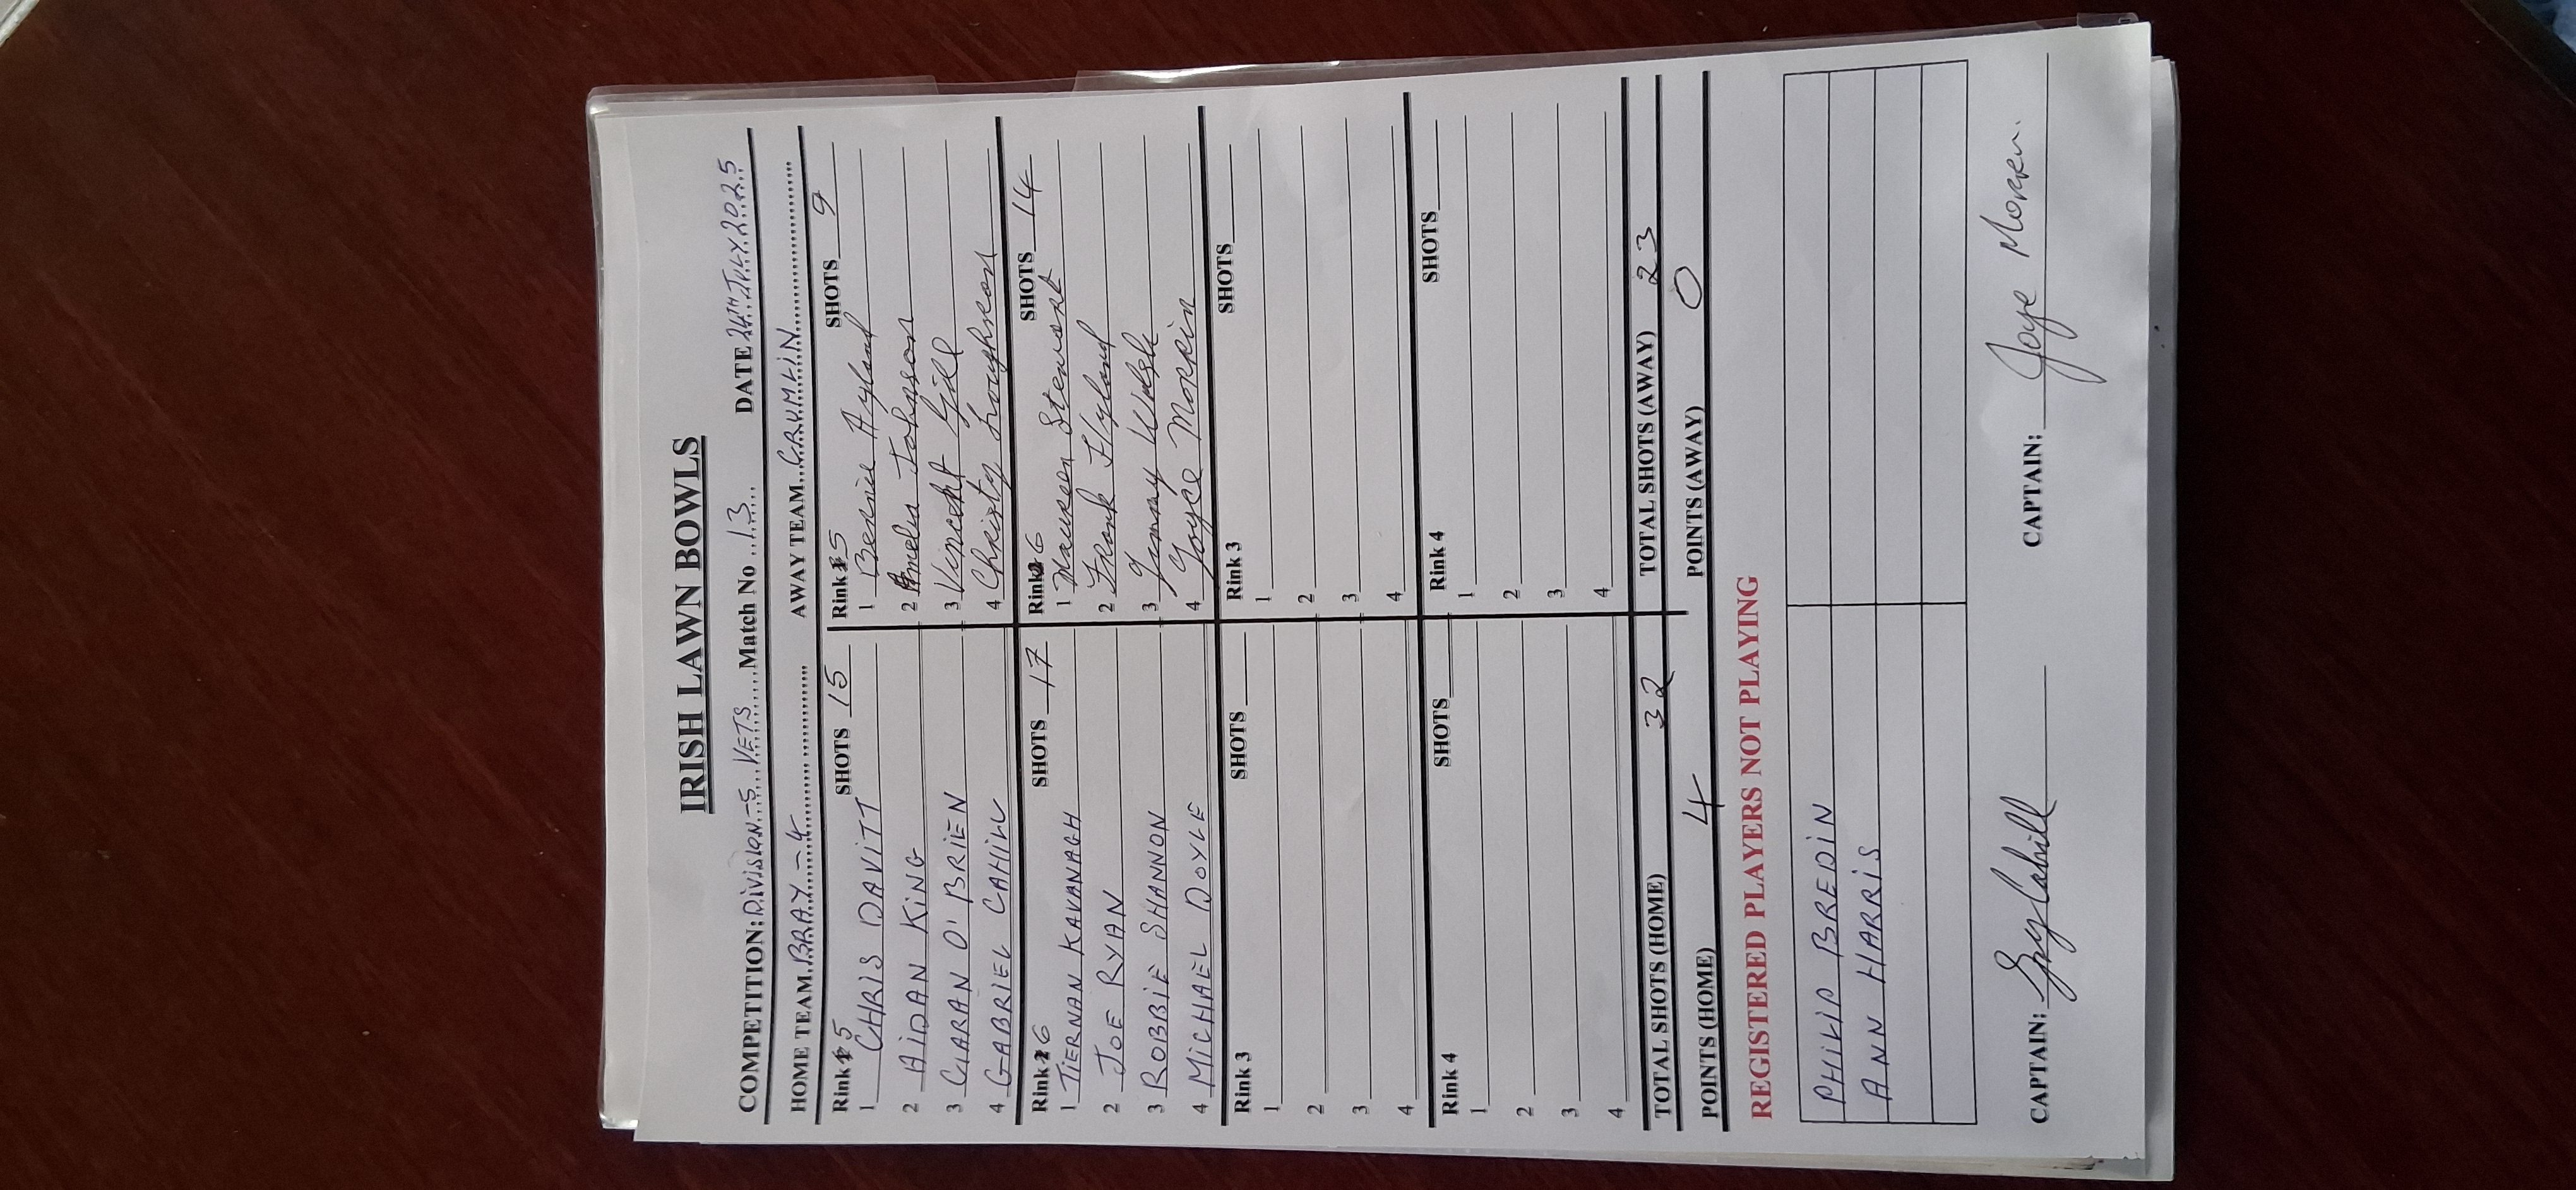 IRISH LAWN BOWLS
COMPETITION: DIVISION-5 VETS Match No 13 DATE 24TH JULY 2025
HOME TEAM BRAY-4 AWAY TEAM CRUMLIN
Rink 5 SHOTS 15 Rink 5 SHOTS 9
1 CHRIS DAVITT 1 Bernie Hyland
2 AIDAN KING 2 Amelia Johnson
3 CIARAN O'BRIEN 3 Vincent Gill
4 GABRIEL CAHILL 4 Christy
Rink 6 SHOTS 17 Rink 6 SHOTS 14
1 TIERNAN KAVANAGH 1 Maureen Stewart
2 JOE RYAN 2 Frank Hyland
3 ROBBIE SHANNON 3 Jimmy Walsh
4 MICHAEL DOYLE 4 Joyce Morrin
Rink 3 SHOTS Rink 3 SHOTS
1 1
2 2
3 3
4 4
Rink 4 SHOTS Rink 4 SHOTS
1 1
2 2
3 3
4 4
TOTAL SHOTS (HOME) 32 TOTAL SHOTS (AWAY) 23
POINTS (HOME) 4 POINTS (AWAY) 0
REGISTERED PLAYERS NOT PLAYING
PHILIP BREDIN
ANN HARRIS
CAPTAIN: Cahill CAPTAIN: Joyce Morrin